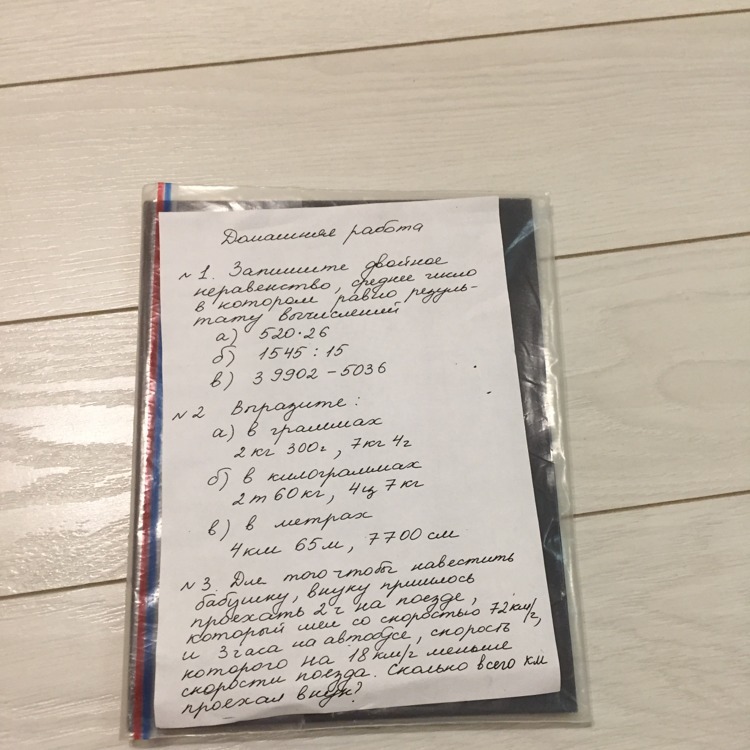 Домашняя работа
№1. Запишите двойное
неравенство, среднее число
в котором равно резуль-
тату вычислений
а) 520·26
б) 1545 : 15
в) 39902 - 5036
№2 Выразите:
а) в граммах
2 кг 300г, 7кг 4г
б) в килограммах
2т 60кг, 4ц 7кг
в) в метрах
4км 65м, 7700 см
№3. Для того чтобы навестить
бабушку, внуку пришлось
проехать 2ч на поезде,
который шел со скоростью 72км/ч,
и 3 часа на автобусе, скорость
которого на 18 км/ч меньше
скорости поезда. Сколько всего км
проехал внук?